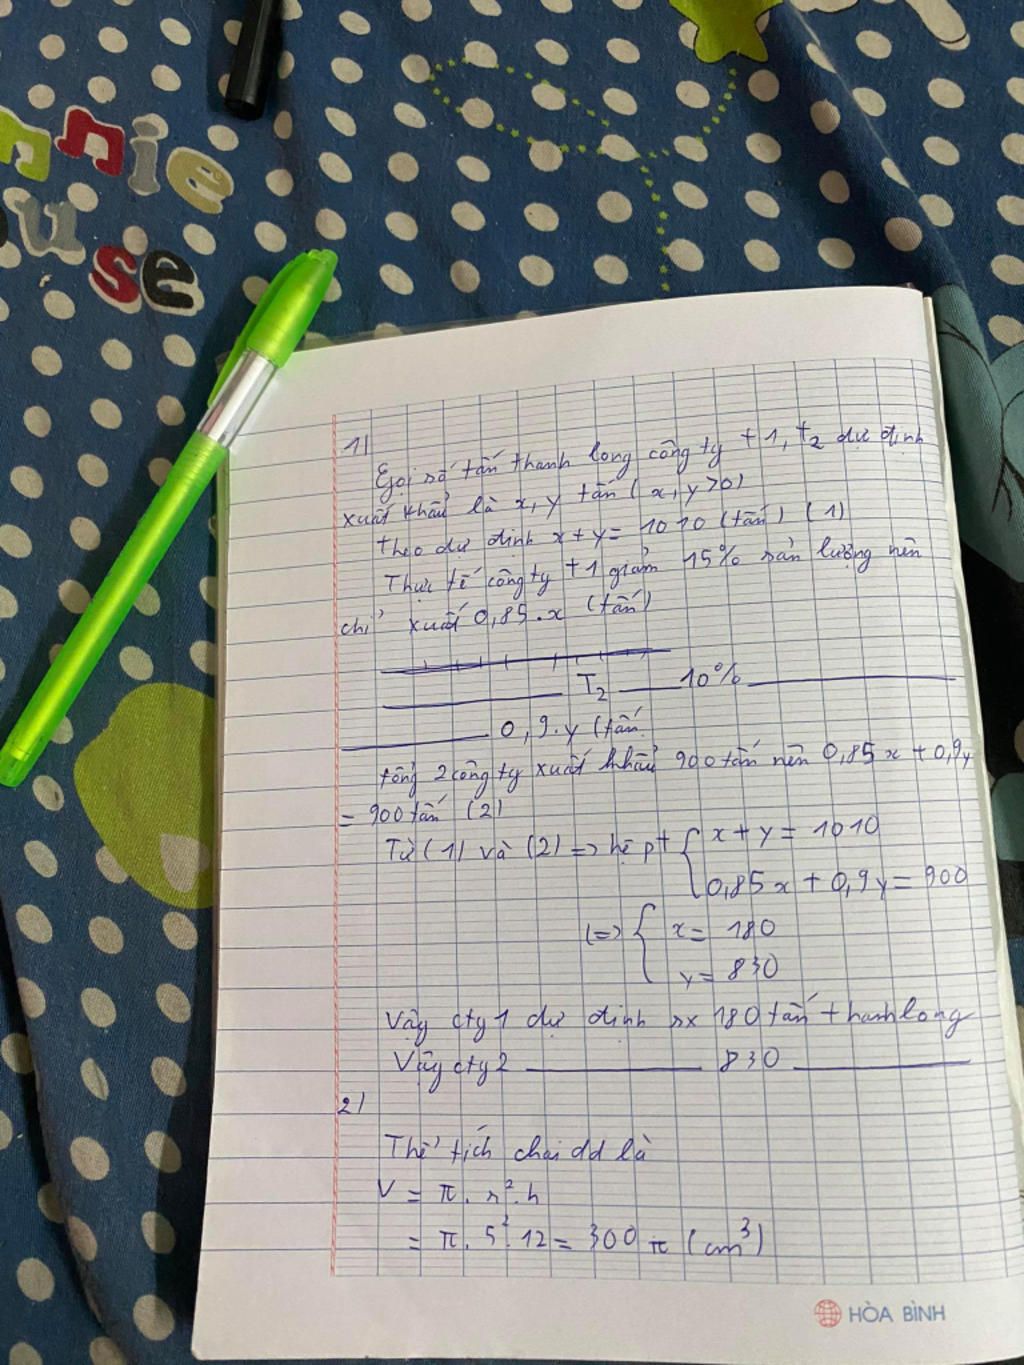 nnie
ouse
1)
Gọi số tấn thanh long công ty t1, t2 dự định
xuất khẩu là x, y tấn (x, y >0)
theo dự định x+y= 1010 (tấn) (1)
Thực tế công ty t1 giảm 15% sản lượng nên
chỉ xuất 0,85.x (tấn)
T2 10%
0,9.y (tấn
tổng 2 công ty xuất khẩu 900 tấn nên 0,85x + 0,9y
= 900 tấn (2)
Từ (1) và (2) => hệ pt { x + y = 1010
0,85x + 0,9y = 900
(=> { x = 180
y = 830
Vậy cty1 dự định sx 180 tấn thanh long
Vậy cty2 830
2)
Thể tích chai dd là
V = π. r². h
= π. 5². 12 = 300 π (cm³)
HÒA BÌNH